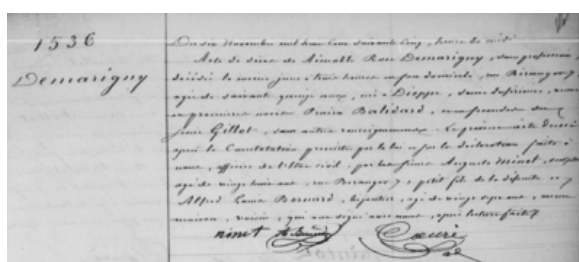 1536
Demarigny
Du six Novembre mil huit cent soixante cinq, heure de midi
Acte de décès de Aimable Rose Demarigny, sans profession
décédée le même jour à trois heures en son domicile, rue Béranger 7
âgée de soixante quinze ans, née à Dieppe,
en premières noces Balidard, en secondes de
Gillot, sans autres renseignements. Le présent acte dressé
après la Constatation prescrite par la loi et sur la déclaration faite à
nous, officier de l'état civil, par les sieurs Auguste Minet,
âgé de vingt huit ans, rue Béranger 7, petit fils de la défunte et
Alfred Louis Bernard, bijoutier, âgé de vingt sept ans, même
maison, voisin, qui ont signé avec nous, après lecture faite